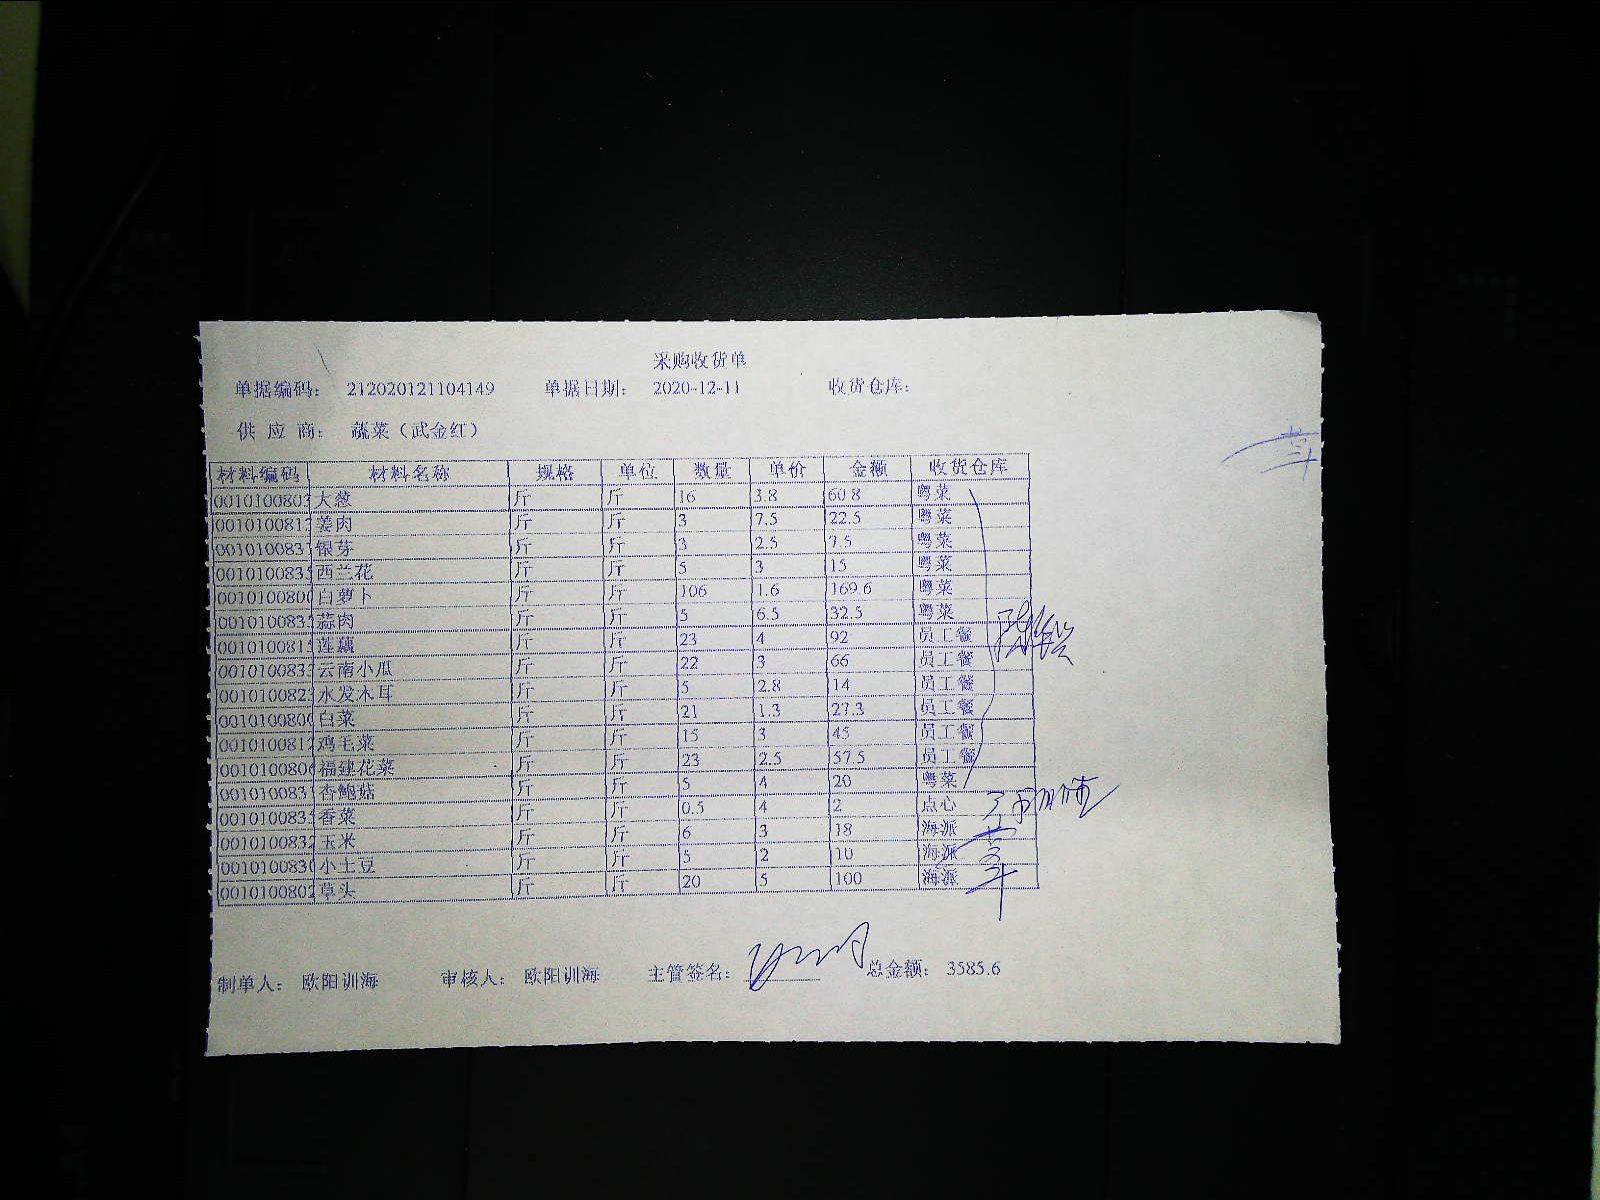 采购收货单
单据编码： 212020121104149 单据日期： 2020-12-11 收货仓库：
供 应 商： 蔬菜（武金红）
材料编码 材料名称 规格 单位 数量 单价 金额 收货仓库
0010100803 大葱 斤 斤 16 3.8 60.8 粤菜
001010081 姜肉 斤 斤 3 7.5 22.5 粤菜
001010083 银芽 斤 斤 3 2.5 7.5 粤菜
001010083 西兰花 斤 斤 5 3 15 粤菜
001010080 白萝卜 斤 斤 106 1.6 169.6 粤菜
001010083 蒜肉 斤 斤 5 6.5 32.5 粤菜
001010081 莲藕 斤 斤 23 4 92 员工餐
001010083 云南小瓜 斤 斤 22 3 66 员工餐
001010082 水发木耳 斤 斤 5 2.8 14 员工餐
001010080 白菜 斤 斤 21 1.3 27.3 员工餐
001010081 鸡毛菜 斤 斤 15 3 45 员工餐
0010100806 福建花菜 斤 斤 23 2.5 57.5 员工餐
001010083 香鲍菇 斤 斤 5 4 20 粤菜
001010083 香菜 斤 斤 0.5 4 2 点心
0010100832 玉米 斤 斤 6 3 18 海派
001010083 小土豆 斤 斤 5 2 10 海派
0010100802 草头 斤 斤 20 5 100 海派
制单人： 欧阳训海 审核人： 欧阳训海 主管签名： 总金额： 3585.6